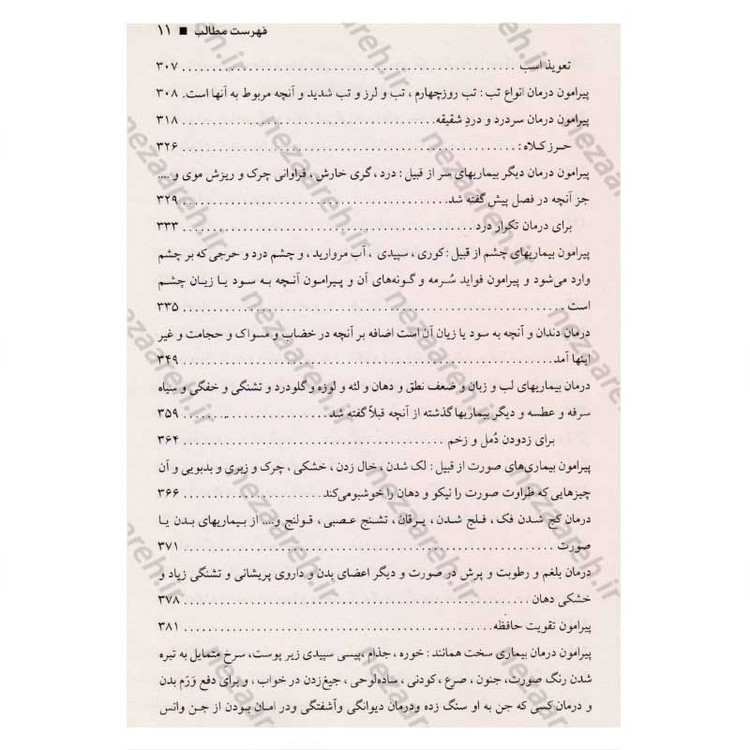 فهرست مطالب ■ ۱۱
تعویذ اسب ........ ۳۰۷
پیرامون درمان انواع تب : تب روزچهارم ، تب و لرز و تب شدید و آنچه مربوط به آنها است. ۳۰۸
پیرامون درمان سردرد و دردِ شقیقه ........ ۳۱۸
حـرز کـلاه : ........ ۳۲۶
پیرامون درمان دیگر بیماریهای سر از قبیل : درد ، گری خارش ، فراوانی چرک و ریزش موی و ....
جز آنچه در فصل پیش گفته شد ........ ۳۲۹
برای درمان تکرار درد ........ ۳۳۳
پیرامون بیماریهای چشم از قبیل : کوری ، سپیدی ، آب مروارید ، و چشم درد و حرجی که بر چشم
وارد می‌شود و پیرامون فواید سُرمه و گونه‌های آن و پیرامون آنچه به سود یا زیان چشم
است ........ ۳۳۵
درمان دندان و آنچه به سود یا زیان آن است اضافه بر آنچه در خضاب و مسواک و حجامت و غیر
اینها آمد ........ ۳۴۹
درمان بیماریهای لب و زبان و ضعف نطق و دهان و لثه و لوزه و گلودرد و تشنگی و خفگی و سیاه
سرفه و عطسه و دیگر بیماریها گذشته از آنچه قبلاً گفته شد ........ ۳۵۹
برای زدودن دُمل و زخم ........ ۳۶۴
پیرامون بیماری‌های صورت از قبیل : لک شدن ، خال زدن ، خشکی ، چرک و زبری و بدبویی و آن
چیزهایی که طراوت صورت را نیکو و دهان را خوشبو‌می‌کند ........ ۳۶۶
درمان کج شدن فک ، فلج شدن ، یرقان ، تشنج عصبی ، قولنج و.... از بیماریهای بدن یا
صورت ........ ۳۷۱
درمان بلغم و رطوبت و پرش در صورت و دیگر اعضای بدن و داروی پریشانی و تشنگی زیاد و
خشکی دهان ........ ۳۷۸
پیرامون تقویت حافظه ........ ۳۸۱
پیرامون درمان بیماری سخت همانند : خوره ، جذام ،پیسی سپیدی زیر پوست، سرخ متمایل به تیره
شدن رنگ صورت، جنون ، صرع ، کودنی ، ساده‌لوحی ، جیغ‌زدن در خواب ، و برای دفع وَرَم بدن
و درمان کسی که جن به او سنگ زده ودرمان دیوانگی وآشفتگی ودر امان بودن از جن وانس
nezaareh.ir